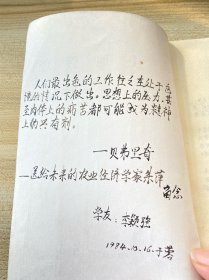 人们最出色的工作往往在处于逆
境的情况下做出。思想上的压力,甚
至肉体上的痛苦都可能成为精神
上的兴奋剂。
——贝弗里奇
——送给未来的农业经济学家朱萍
留念
学友:李颖
1994.